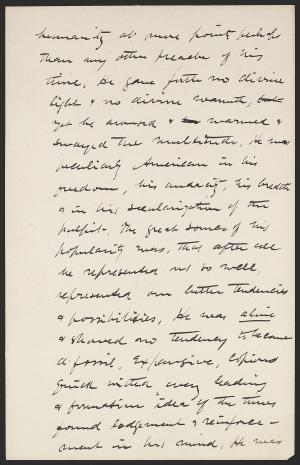 humanity at more points perhaps
than any other preacher of his
time. He gave forth no divine
light & no divine warmth, but
yet he aroused & warmed &
swayed the multitude. He was
peculiarly American in his
freedom, his audacity, his breadth
& in his secularization of the
pulpit. The great source of his
popularity was, that after all
he represented us so well,
represented our better tendencies
& possibilities. He was alive
& showed no tendency to become
a fossil. Expansive, copious
quick witted every leading
& formative "idea" of the times
found lodgement & reinforce-
ment in his mind. He was